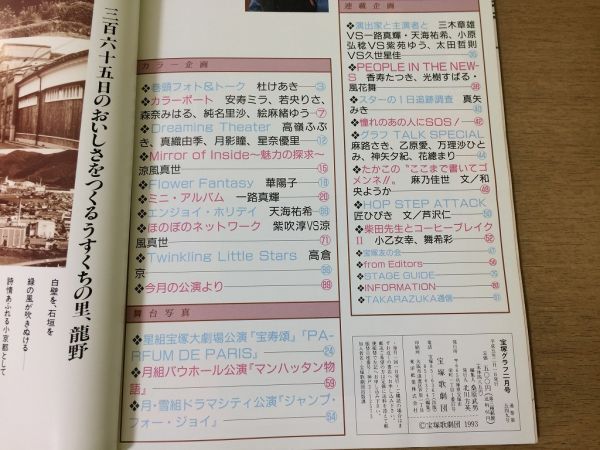 三百六十五日のおいしさをつくるうすくちの里、龍野
白壁を、石垣を
緑の風が吹きぬける
詩情あふれる小京都として
カラー企画
❖巻頭フォト&トーク 杜けあき③
❖カラーポート 安寿ミラ、若央りさ、
森奈みはる、純名里沙、絵麻緒ゆう⑦
❖Dreaming Theater 高嶺ふぶ
き、真織由季、月影瞳、星奈優里⑫
❖Mirror of Inside〜魅力の探求〜
涼風真世⑯
❖Flower Fantasy 華陽子⑱
❖ミニ・アルバム 一路真輝⑳
❖エンジョイ・ホリデイ 天海祐希
❖ほのぼのネットワーク 紫吹淳VS涼
風真世㉛
❖Twinkling Little Stars 高倉
京
❖今月の公演より
舞台写真
❖星組宝塚大劇場公演『宝寿頌』『PA-
RFUM DE PARIS』㉔
❖月組バウホール公演『マンハッタン物
語』
❖月・雪組ドラマシティ公演『ジャンプ・
フォー・ジョイ』
連載企画
❖演出家と主演者と 三木章雄
VS一路真輝・天海祐希、小原
弘稔VS紫苑ゆう、太田哲則
VS久世星佳
❖PEOPLE IN THE NEW-
S 香寿たつき、光樹すばる・
風花舞
❖スターの1日追跡調査 真矢
みき
❖憧れのあの人にSOS!
❖グラフ TALK SPECIAL
麻路さき、乙原愛、万理沙ひと
み、神矢夕紀、花總まり
❖たかこの“ここまで書いてゴ
メンネ!!” 麻乃佳世 文/和
央ようか
❖HOP STEP ATTACK
匠ひびき 文/芦沢仁
❖柴田先生とコーヒーブレイク
II 小乙女幸、舞希彩
❖宝塚友の会
❖from Editors
❖STAGE GUIDE
❖INFORMATION
❖TAKARAZUKA通信
宝塚グラフ二月号
宝塚歌劇団
©宝塚歌劇団 1993